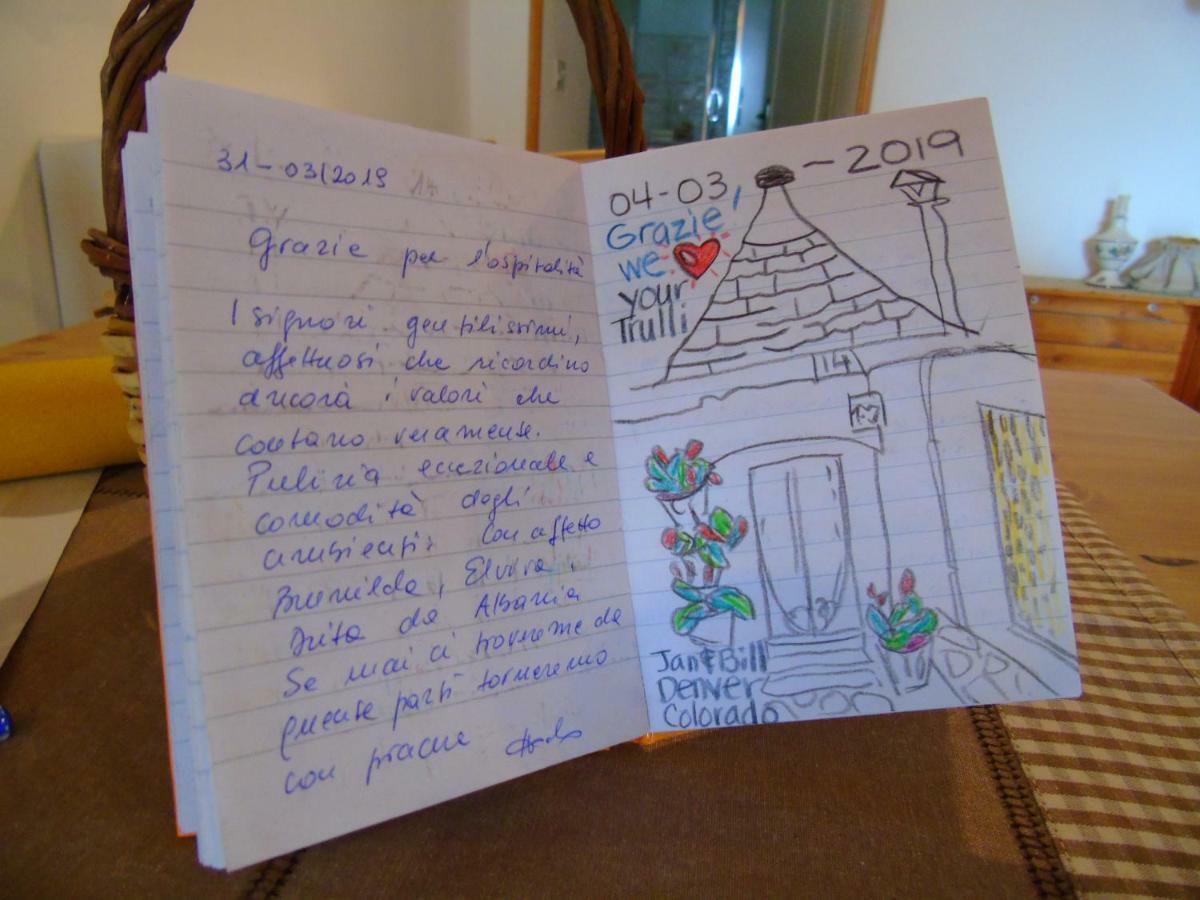 31-03/2019
Grazie per l'ospitalità
I signori gentilissimi,
affettuosi che ricordino
ancora i valori che
contano veramense.
Pulizia eccezionale e
comodità degli
ambienti. Con affetto
Brunilda, Elvira,
Drita da Albania
Se mai ci troveremo da
queste parti torneremo
con piacere
04-03, -2019
Grazie,
we ❤
your
Trulli
14
Jan & Bill
Denver
Colorado